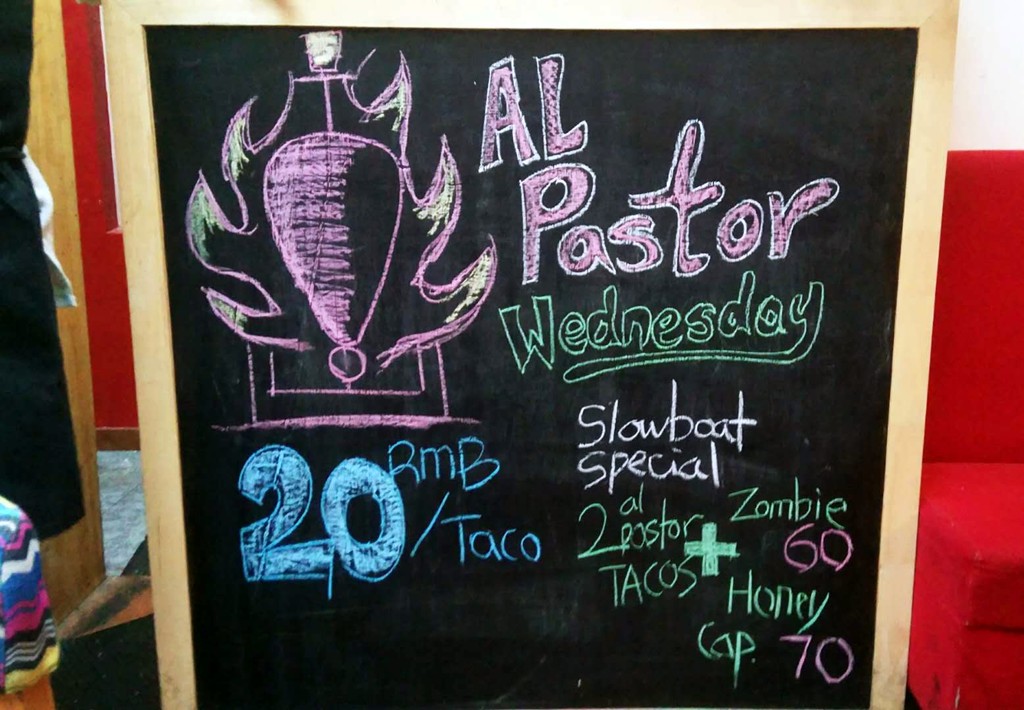 AL
Pastor
Wednesday
20 RMB
/Taco
Slowboat
special
2 al
pastor
TACOS
+
Zombie
60
Honey
Cap. 70